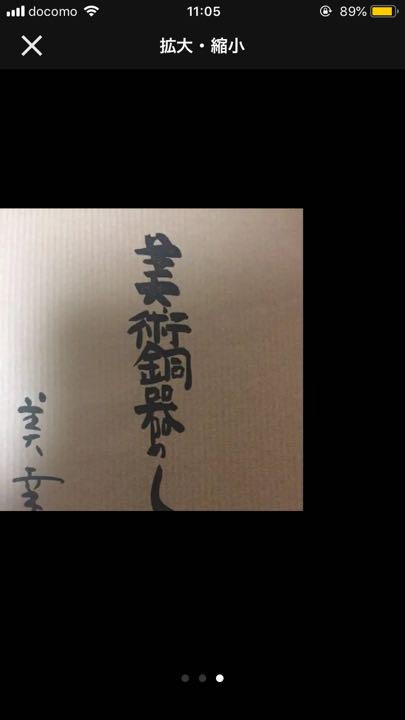 docomo 11:05 89%
拡大・縮小
美術銅器のし